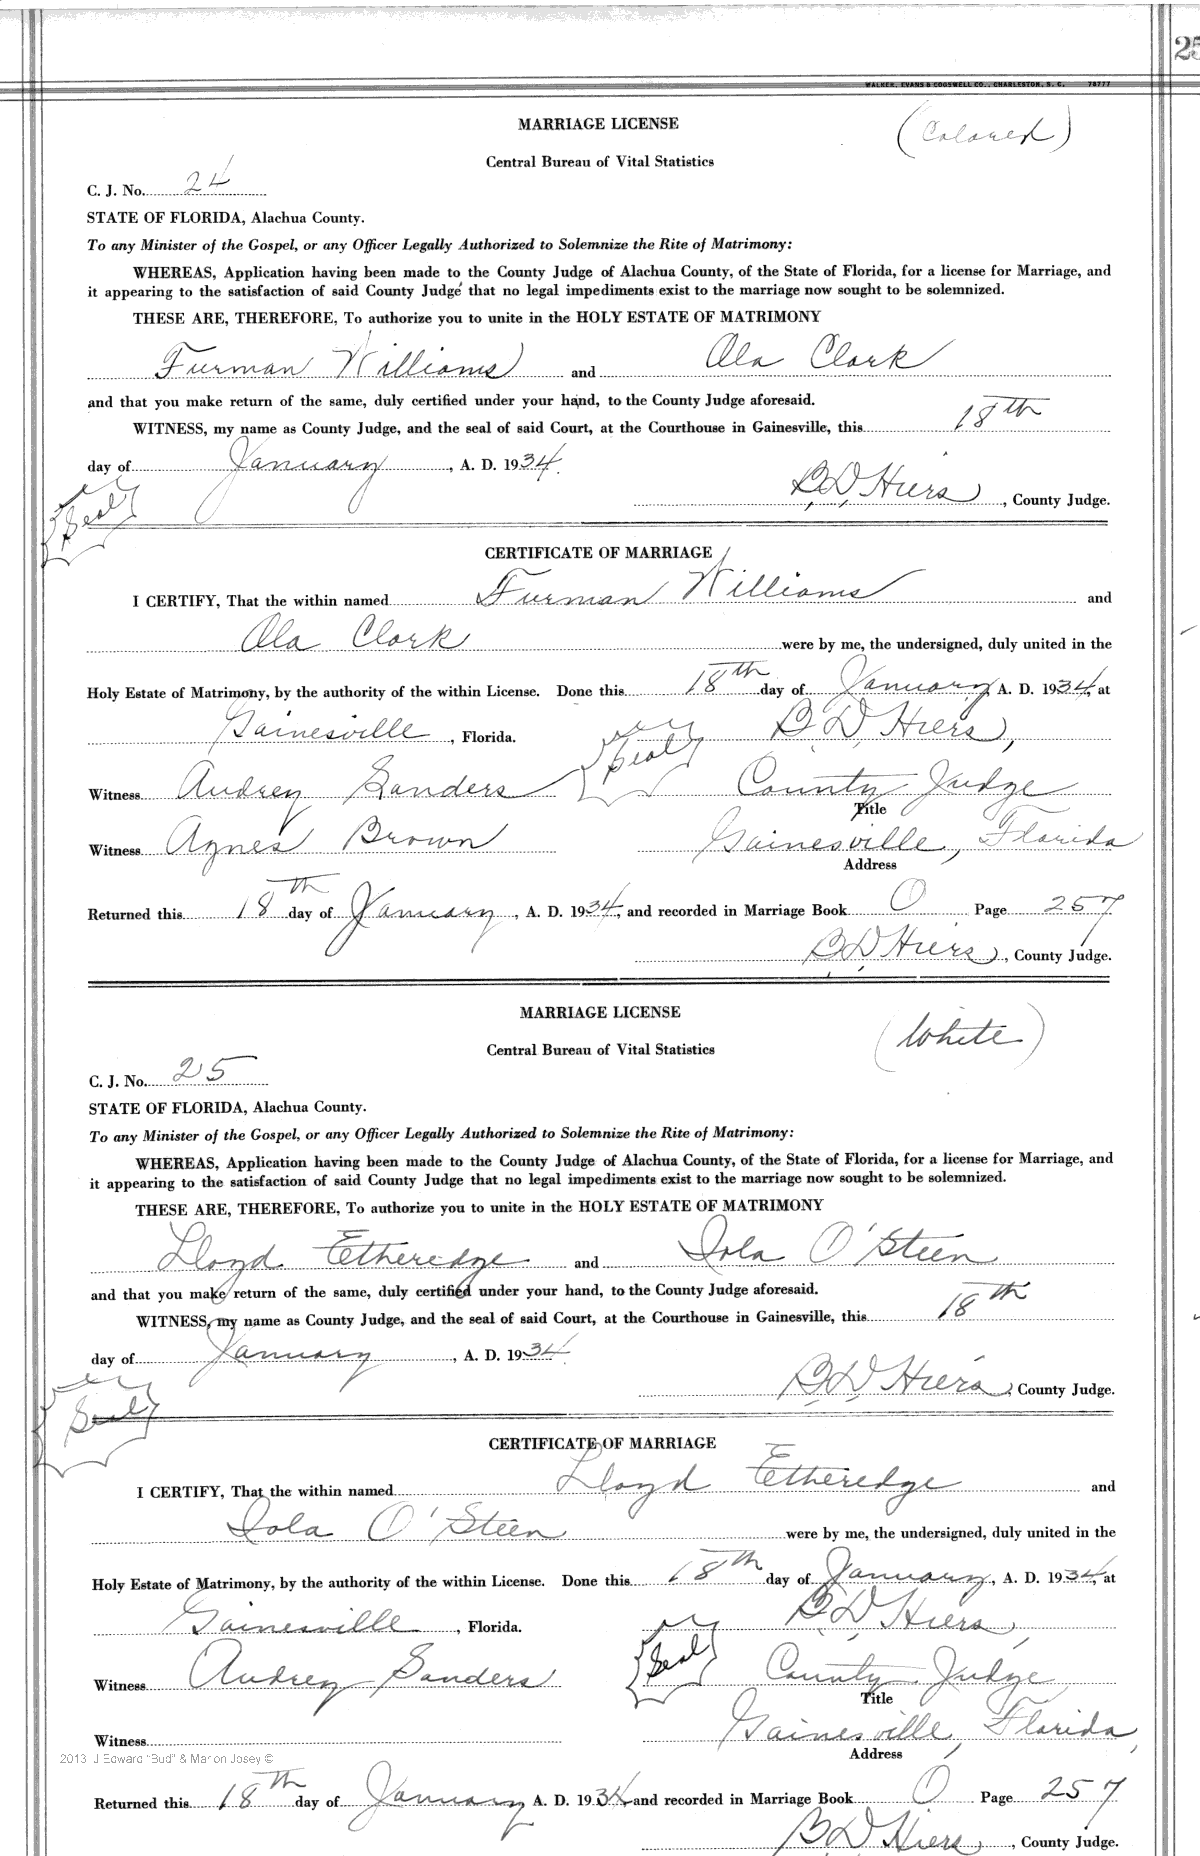 25
WALKER, EVANS & COGSWELL CO., CHARLESTON, S. C. 78777
MARRIAGE LICENSE (Colored)
Central Bureau of Vital Statistics
C. J. No. 24
STATE OF FLORIDA, Alachua County.
To any Minister of the Gospel, or any Officer Legally Authorized to Solemnize the Rite of Matrimony:
WHEREAS, Application having been made to the County Judge of Alachua County, of the State of Florida, for a license for Marriage, and
it appearing to the satisfaction of said County Judge that no legal impediments exist to the marriage now sought to be solemnized.
THESE ARE, THEREFORE, To authorize you to unite in the HOLY ESTATE OF MATRIMONY
Furman Williams and Ola Clark
and that you make return of the same, duly certified under your hand, to the County Judge aforesaid.
WITNESS, my name as County Judge, and the seal of said Court, at the Courthouse in Gainesville, this 18th
day of January, A. D. 1934.
B D Hiers, County Judge.
Seal
CERTIFICATE OF MARRIAGE
I CERTIFY, That the within named Furman Williams and
Ola Clark were by me, the undersigned, duly united in the
Holy Estate of Matrimony, by the authority of the within License. Done this 18th day of January, A. D. 1934, at
Gainesville, Florida. Seal B D Hiers,
Witness Audrey Sanders County Judge
Title
Witness Agnes Brown Gainesville, Florida
Address
Returned this 18th day of January, A. D. 1934, and recorded in Marriage Book O Page 257
B D Hiers, County Judge.
MARRIAGE LICENSE (White)
Central Bureau of Vital Statistics
C. J. No. 25
STATE OF FLORIDA, Alachua County.
To any Minister of the Gospel, or any Officer Legally Authorized to Solemnize the Rite of Matrimony:
WHEREAS, Application having been made to the County Judge of Alachua County, of the State of Florida, for a license for Marriage, and
it appearing to the satisfaction of said County Judge that no legal impediments exist to the marriage now sought to be solemnized.
THESE ARE, THEREFORE, To authorize you to unite in the HOLY ESTATE OF MATRIMONY
Lloyd Etheredge and Iola O'Steen
and that you make return of the same, duly certified under your hand, to the County Judge aforesaid.
WITNESS, my name as County Judge, and the seal of said Court, at the Courthouse in Gainesville, this 18th
day of January, A. D. 1934.
B D Hiers, County Judge.
Seal
CERTIFICATE OF MARRIAGE
I CERTIFY, That the within named Lloyd Etheredge and
Iola O'Steen were by me, the undersigned, duly united in the
Holy Estate of Matrimony, by the authority of the within License. Done this 18th day of January, A. D. 1934, at
Gainesville, Florida. Seal B D Hiers,
Witness Audrey Sanders County Judge
Title
Witness Gainesville, Florida,
Address
2013 J Edward "Bud" & Marion Josey ©
Returned this 18th day of January A. D. 1934 and recorded in Marriage Book O Page 257
B D Hiers, County Judge.